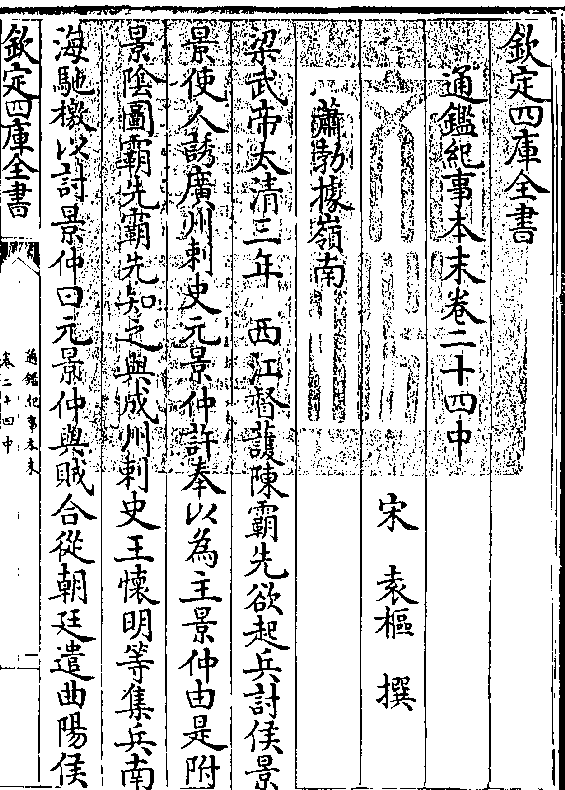 欽定四庫全書
通鑑紀事本末卷二十四中
宋 袁樞 撰
蕭勃據嶺南
梁武帝太清三年 西江督護陳霸先欲起兵討侯景
景使人誘廣州刺史元景仲許奉以為主景仲由是附
景陰圖霸先霸先知之與成州刺史王懷明等集兵南
海馳檄以討景仲曰元景仲與賊合從朝廷遣曲陽侯
欽定四庫全書
通鑑紀事本末
卷二十四中